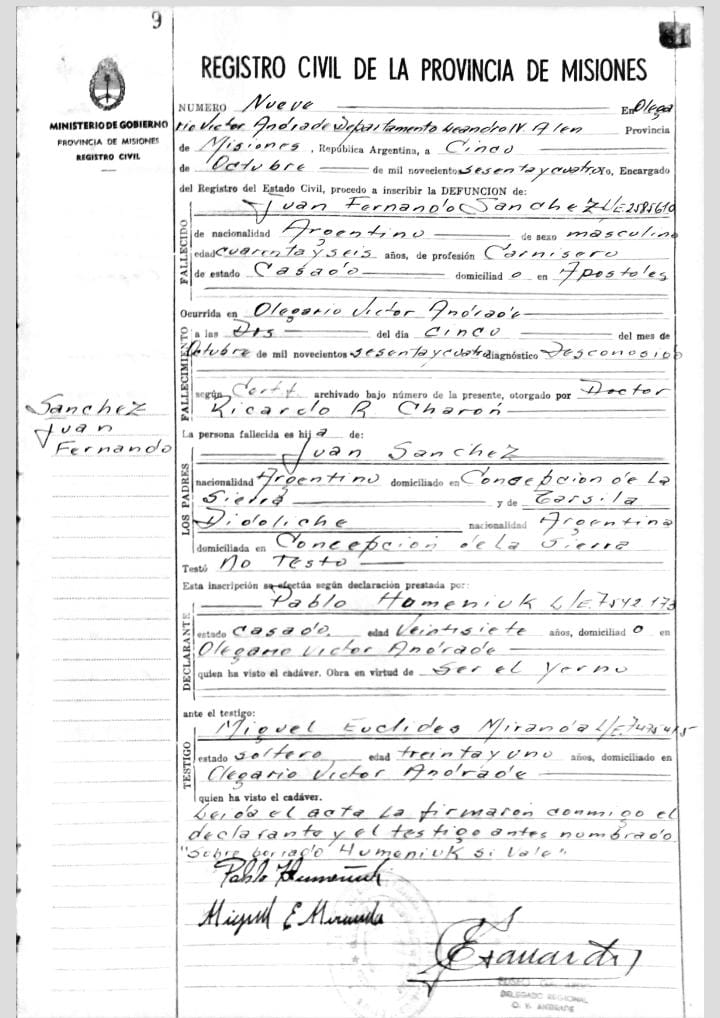 9
MINISTERIO DE GOBIERNO
PROVINCIA DE MISIONES
REGISTRO CIVIL
Sanchez
Juan
Fernando
REGISTRO CIVIL DE LA PROVINCIA DE MISIONES
NUMERO Nueve En Olega
rio Victor Andrade Departamento Leandro N. Alen Provincia
de Misiones, República Argentina, a Cinco
de Octubre de mil novecientos sesenta y cuatro Yo, Encargado
del Registro del Estado Civil, procedo a inscribir la DEFUNCION de:
Juan Fernando Sanchez L/E 2585610
FALLECIDO
de nacionalidad Argentino de sexo masculino
edad cuarenta y seis años, de profesión Carnisero
de estado Casado domiciliado en Apostoles
Ocurrida en Olegario Victor Andrade
FALLECIMIENTO
a las Dos del día Cinco del mes de
Octubre de mil novecientos sesenta y cuatro diagnóstico Desconosido
según Certf. archivado bajo número de la presente, otorgado por Doctor
Ricardo R Charon
La persona fallecida es hija de:
LOS PADRES
Juan Sanchez
nacionalidad Argentino domiciliado en Concepcion de La
Sierra y de Tarsila
Didoliche nacionalidad Argentina
domiciliada en Concepcion de La Sierra
Testó No Testo
Esta inscripción se efectúa según declaración prestada por:
DECLARANTE
Pablo Humeniuk L/E 7542.173
estado casado, edad Veintisiete años, domiciliado en
Olegario Victor Andrade
quien ha visto el cadáver. Obra en virtud de Ser el Yerno
ante el testigo:
TESTIGO
Miguel Euclides Miranda L/E 7475415
estado soltero, edad treinta y uno años, domiciliado en
Olegario Victor Andrade
quien ha visto el cadáver.
Leida el acta La firmaron conmigo el
declarante y el testigo antes nombrado
"Sobre borrado Humeniuk si Vale"
Pablo Humeniuk
Miguel E Miranda
DELEGADO REGIONAL
O. V. ANDRADE